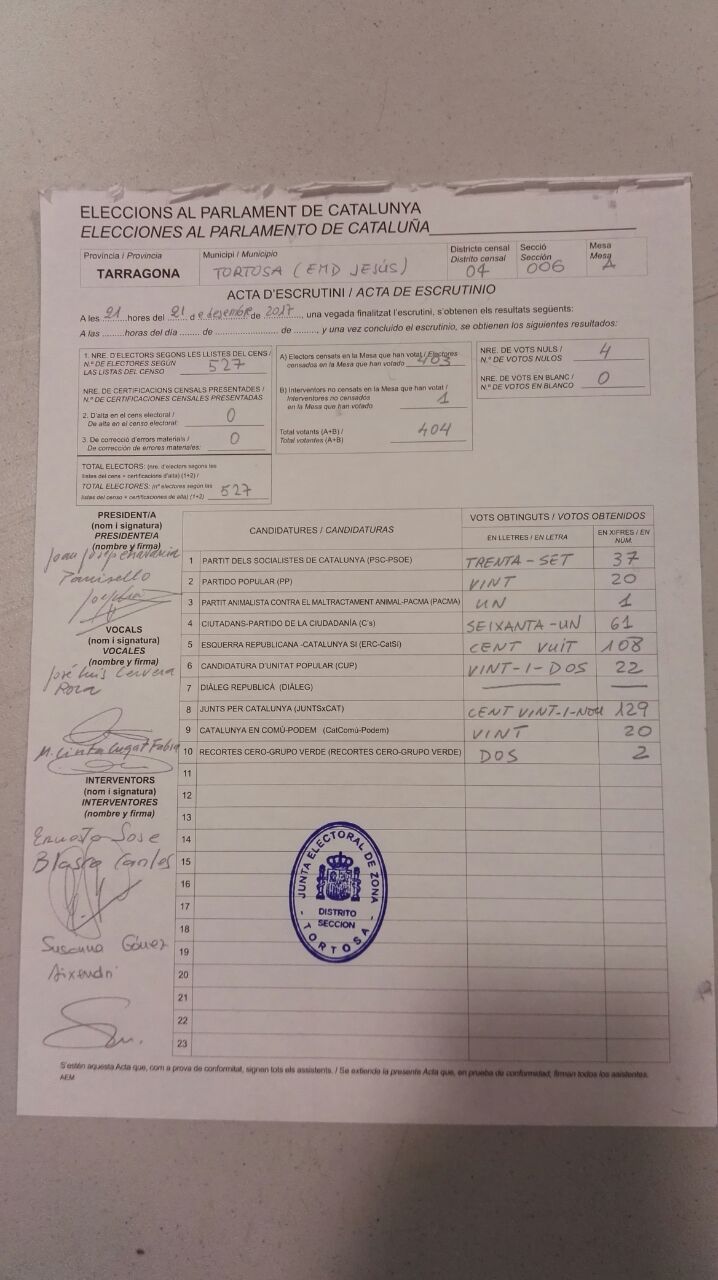 ELECCIONS AL PARLAMENT DE CATALUNYA
ELECCIONES AL PARLAMENTO DE CATALUÑA
Província / Provincia
TARRAGONA
Municipi / Municipio
TORTOSA (EMD JESÚS)
Districte censal
Distrito censal
04
Secció
Sección
006
Mesa
Mesa
A
ACTA D'ESCRUTINI / ACTA DE ESCRUTINIO
A les 21 hores del 21 de desembre de 2017, una vegada finalitzat l'escrutini, s'obtenen els resultats següents:
A las ......... horas del día ....... de ....................... de ........, y una vez concluido el escrutinio, se obtienen los siguientes resultados:
1. NRE. D'ELECTORS SEGONS LES LLISTES DEL CENS /
N.º DE ELECTORES SEGÚN
LAS LISTAS DEL CENSO
527
NRE. DE CERTIFICACIONS CENSALS PRESENTADES /
N.º DE CERTIFICACIONES CENSALES PRESENTADAS
2. D'alta en el cens electoral /
De alta en el censo electoral:
0
3. De correcció d'errors materials /
De corrección de errores materiales:
0
TOTAL ELECTORS: (nre. d'electors segons les
llistes del cens + certificacions d'alta) (1+2) /
TOTAL ELECTORES: (nº electores según las
listas del censo + certificaciones de alta) (1+2)
527
A) Electors censats en la Mesa que han votat / Electores
censados en la Mesa que han votado
403
B) Interventors no censats en la Mesa que han votat /
Interventores no censados
en la Mesa que han votado
1
Total votants (A+B) /
Total votantes (A+B)
404
NRE. DE VOTS NULS /
N.º DE VOTOS NULOS
4
NRE. DE VOTS EN BLANC /
N.º DE VOTOS EN BLANCO
0
PRESIDENT/A
(nom i signatura)
PRESIDENTE/A
(nombre y firma)
Joan Josep
VOCALS
(nom i signatura)
VOCALES
(nombre y firma)
José Luis Cervera
M. Cinta Cugat Fabra
INTERVENTORS
(nom i signatura)
INTERVENTORES
(nombre y firma)
Ernesto Jose
Blasco
Susanna Gómez
Aixendri
CANDIDATURES / CANDIDATURAS
VOTS OBTINGUTS / VOTOS OBTENIDOS
EN LLETRES / EN LETRA
EN XIFRES / EN NUM.
1 PARTIT DELS SOCIALISTES DE CATALUNYA (PSC-PSOE) TRENTA-SET 37
2 PARTIDO POPULAR (PP) VINT 20
3 PARTIT ANIMALISTA CONTRA EL MALTRACTAMENT ANIMAL-PACMA (PACMA) UN 1
4 CIUTADANS-PARTIDO DE LA CIUDADANÍA (C's) SEIXANTA-UN 61
5 ESQUERRA REPUBLICANA -CATALUNYA SI (ERC-CatSí) CENT VUIT 108
6 CANDIDATURA D'UNITAT POPULAR (CUP) VINT-I-DOS 22
7 DIÀLEG REPUBLICÀ (DIÀLEG)
8 JUNTS PER CATALUNYA (JUNTSxCAT) CENT VINT-I-NOU 129
9 CATALUNYA EN COMÚ-PODEM (CatComú-Podem) VINT 20
10 RECORTES CERO-GRUPO VERDE (RECORTES CERO-GRUPO VERDE) DOS 2
11
12
13
14
15
16
17
18
19
20
21
22
23
JUNTA ELECTORAL DE ZONA
DISTRITO
SECCION
TORTOSA
S'estén aquesta Acta que, com a prova de conformitat, signen tots els assistents. / Se extiende la presente Acta que, en prueba de conformidad, firman todos los asistentes.
AEM